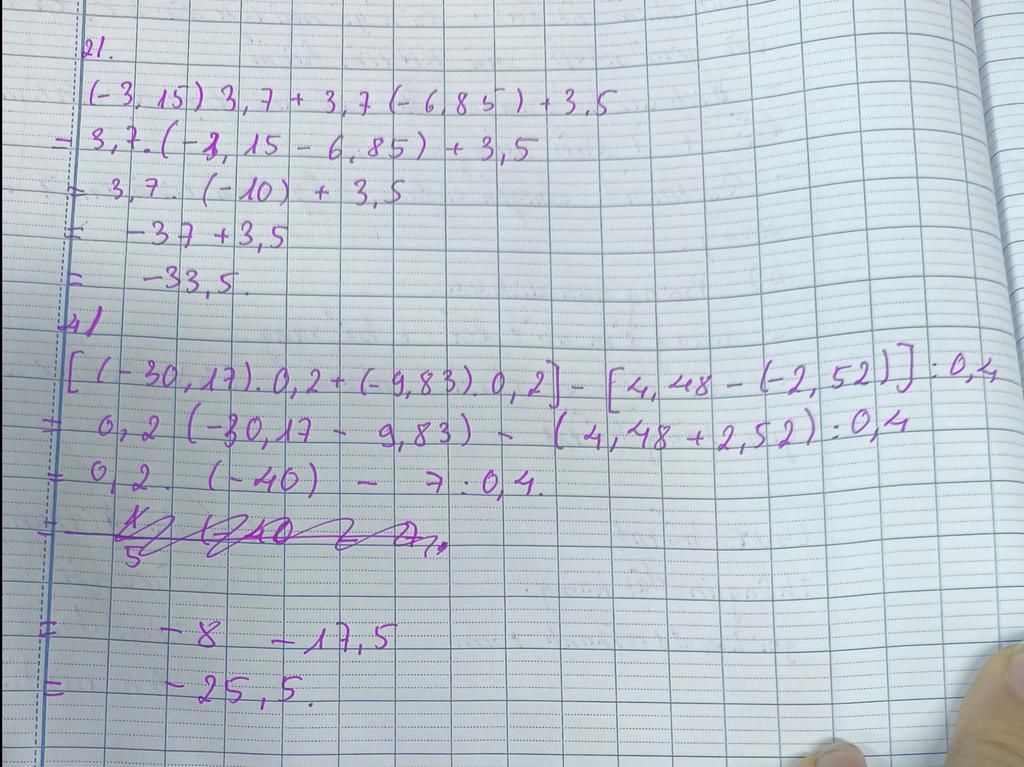 2/.
(-3,15) 3,7 + 3,7 (-6,85) + 3,5
= 3,7.(-3,15 - 6,85) + 3,5
= 3,7. (-10) + 3,5
= -37 + 3,5
= -33,5.
4/
[(-30,17).0,2 + (-9,83).0,2] - [4,48 - (-2,52)] : 0,4
= 0,2 (-30,17 - 9,83) - (4,48 + 2,52) : 0,4
= 0,2. (-40) - 7 : 0,4.
= - 8 - 17,5
= - 25,5.